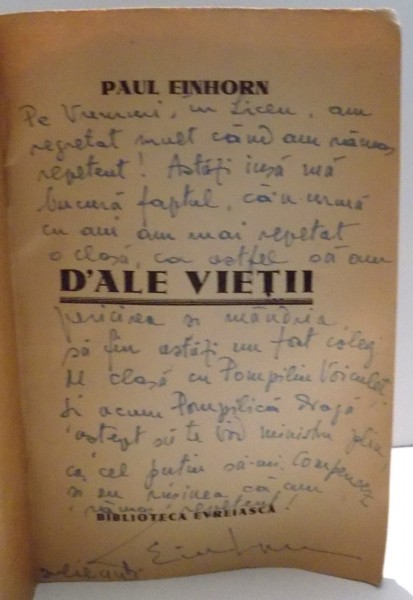 PAUL EINHORN
Pe vremuri, în Liceu, am
regretat mult când am rămas
repetent! Astăzi însă mă
bucură faptul, că'n urmă
cu ani am mai repetat
o clasă, ca astfel să am
D'ALE VIEȚII
fericirea si mândria
să fiu astăzi un fost coleg
de clasă cu Pompiliu Voiculeț
Și acum Pompilică dragă
aștept să te văd ministru
ca cel puțin să-mi compensez
si eu rușinea că am
rămas repetent!
BIBLIOTECA EVREIASCĂ
Einhorn